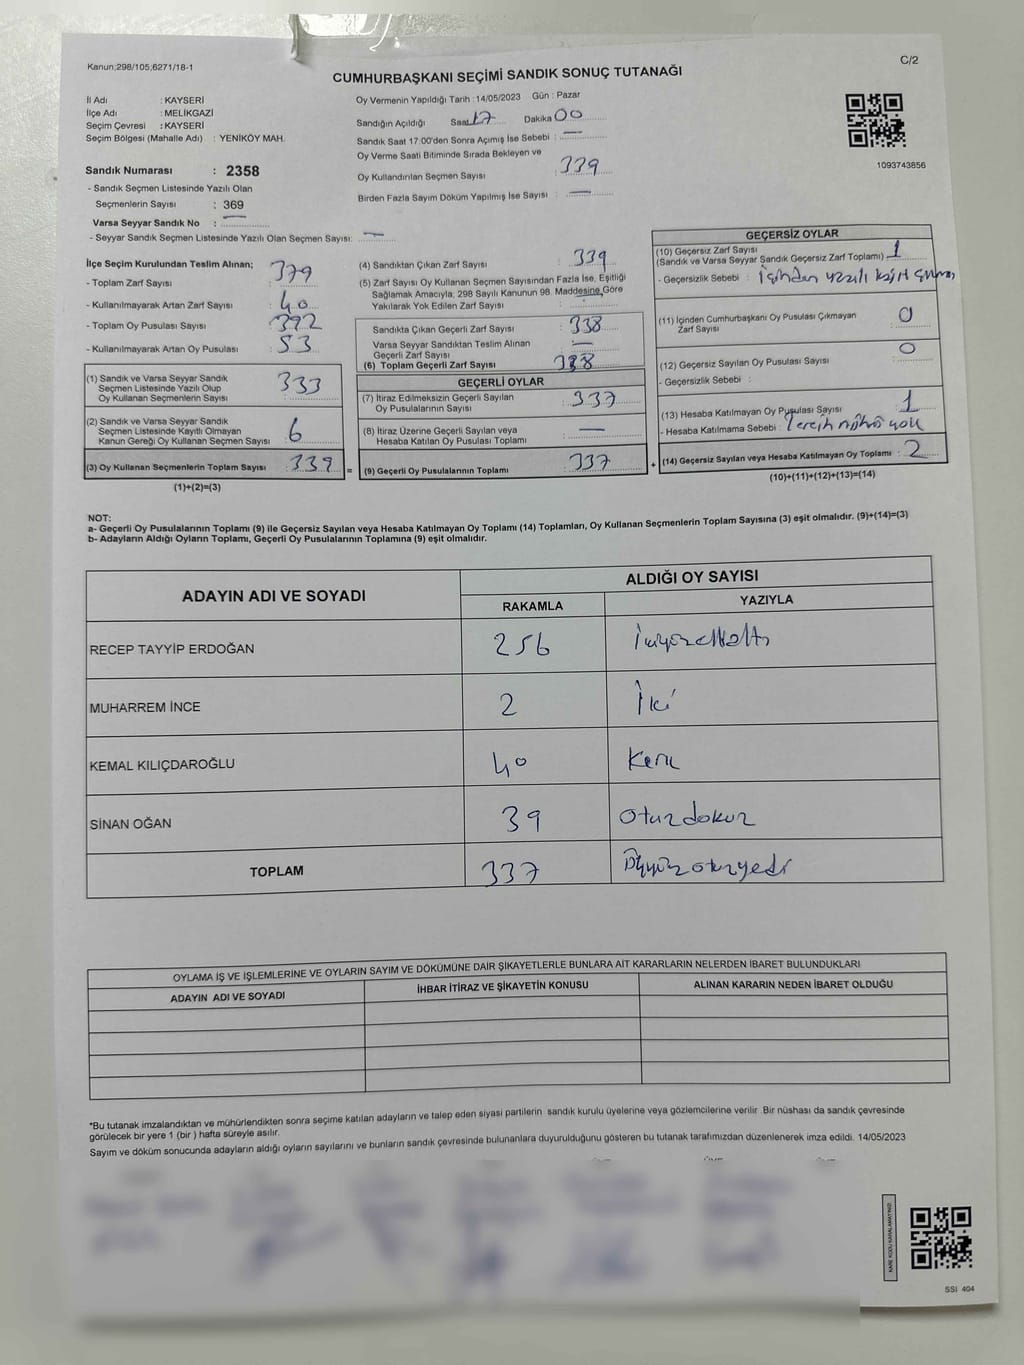 Kanun;298/105;6271/18-1
C/2
CUMHURBAŞKANI SEÇİMİ SANDIK SONUÇ TUTANAĞI
İl Adı : KAYSERİ
İlçe Adı : MELİKGAZİ
Seçim Çevresi : KAYSERİ
Seçim Bölgesi (Mahalle Adı) : YENİKÖY MAH.
Oy Vermenin Yapıldığı Tarih :14/05/2023 Gün : Pazar
Sandığın Açıldığı Saat 17 Dakika 00
Sandık Saat 17:00'den Sonra Açımış İse Sebebi : —
Oy Verme Saati Bitiminde Sırada Bekleyen ve
Oy Kullandırılan Seçmen Sayısı : 339
Birden Fazla Sayım Döküm Yapılmış İse Sayısı : —
1093743856
Sandık Numarası : 2358
- Sandık Seçmen Listesinde Yazılı Olan
Seçmenlerin Sayısı : 369
Varsa Seyyar Sandık No : —
- Seyyar Sandık Seçmen Listesinde Yazılı Olan Seçmen Sayısı: —
İlçe Seçim Kurulundan Teslim Alınan;
- Toplam Zarf Sayısı : 379
- Kullanılmayarak Artan Zarf Sayısı : 40
- Toplam Oy Pusulası Sayısı : 392
- Kullanılmayarak Artan Oy Pusulası : 53
(1) Sandık ve Varsa Seyyar Sandık
Seçmen Listesinde Yazılı Olup
Oy Kullanan Seçmenlerin Sayısı : 333
(2) Sandık ve Varsa Seyyar Sandık
Seçmen Listesinde Kayıtlı Olmayan
Kanun Gereği Oy Kullanan Seçmen Sayısı : 6
(3) Oy Kullanan Seçmenlerin Toplam Sayısı : 339 =
(1)+(2)=(3)
(4) Sandıktan Çıkan Zarf Sayısı : 339
(5) Zarf Sayısı Oy Kullanan Seçmen Sayısından Fazla İse, Eşitliği
Sağlamak Amacıyla, 298 Sayılı Kanunun 98. Maddesine Göre
Yakılarak Yok Edilen Zarf Sayısı : —
Sandıkta Çıkan Geçerli Zarf Sayısı : 338
Varsa Seyyar Sandıktan Teslim Alınan
Geçerli Zarf Sayısı : —
(6) Toplam Geçerli Zarf Sayısı : 338
GEÇERLİ OYLAR
(7) İtiraz Edilmeksizin Geçerli Sayılan
Oy Pusulalarının Sayısı : 337
(8) İtiraz Üzerine Geçerli Sayılan veya
Hesaba Katılan Oy Pusulası Toplamı : —
(9) Geçerli Oy Pusulalarının Toplamı : 337 +
GEÇERSİZ OYLAR
(10) Geçersiz Zarf Sayısı
(Sandık ve Varsa Seyyar Sandık Geçersiz Zarf Toplamı) : 1
- Geçersizlik Sebebi : İçinden yazılı
(11) İçinden Cumhurbaşkanı Oy Pusulası Çıkmayan
Zarf Sayısı : 0
(12) Geçersiz Sayılan Oy Pusulası Sayısı : 0
- Geçersizlik Sebebi :
(13) Hesaba Katılmayan Oy Pusulası Sayısı : 1
- Hesaba Katılmama Sebebi : Tercih mührü yok
(14) Geçersiz Sayılan veya Hesaba Katılmayan Oy Toplamı : 2
(10)+(11)+(12)+(13)=(14)
NOT:
a- Geçerli Oy Pusulalarının Toplamı (9) ile Geçersiz Sayılan veya Hesaba Katılmayan Oy Toplamı (14) Toplamları, Oy Kullanan Seçmenlerin Toplam Sayısına (3) eşit olmalıdır. (9)+(14)=(3)
b- Adayların Aldığı Oyların Toplamı, Geçerli Oy Pusulalarının Toplamına (9) eşit olmalıdır.
ADAYIN ADI VE SOYADI
ALDIĞI OY SAYISI
RAKAMLA YAZIYLA
RECEP TAYYİP ERDOĞAN 256 İkiyüzellialtı
MUHARREM İNCE 2 İki
KEMAL KILIÇDAROĞLU 40 Kırk
SİNAN OĞAN 39 Otuzdokuz
TOPLAM 337 Üçyüzotuzyedi
OYLAMA İŞ VE İŞLEMLERİNE VE OYLARIN SAYIM VE DÖKÜMÜNE DAİR ŞİKAYETLERLE BUNLARA AİT KARARLARIN NELERDEN İBARET BULUNDUKLARI
ADAYIN ADI VE SOYADI İHBAR İTİRAZ VE ŞİKAYETİN KONUSU ALINAN KARARIN NEDEN İBARET OLDUĞU
*Bu tutanak imzalandıktan ve mühürlendikten sonra seçime katılan adayların ve talep eden siyasi partilerin sandık kurulu üyelerine veya gözlemcilerine verilir .Bir nüshası da sandık çevresinde
görülecek bir yere 1 (bir ) hafta süreyle asılır.
Sayım ve döküm sonucunda adayların aldığı oyların sayılarını ve bunların sandık çevresinde bulunanlara duyurulduğunu gösteren bu tutanak tarafımızdan düzenlenerek imza edildi. 14/05/2023
KARE KODU KARALAMAYINIZ!
SSI 404